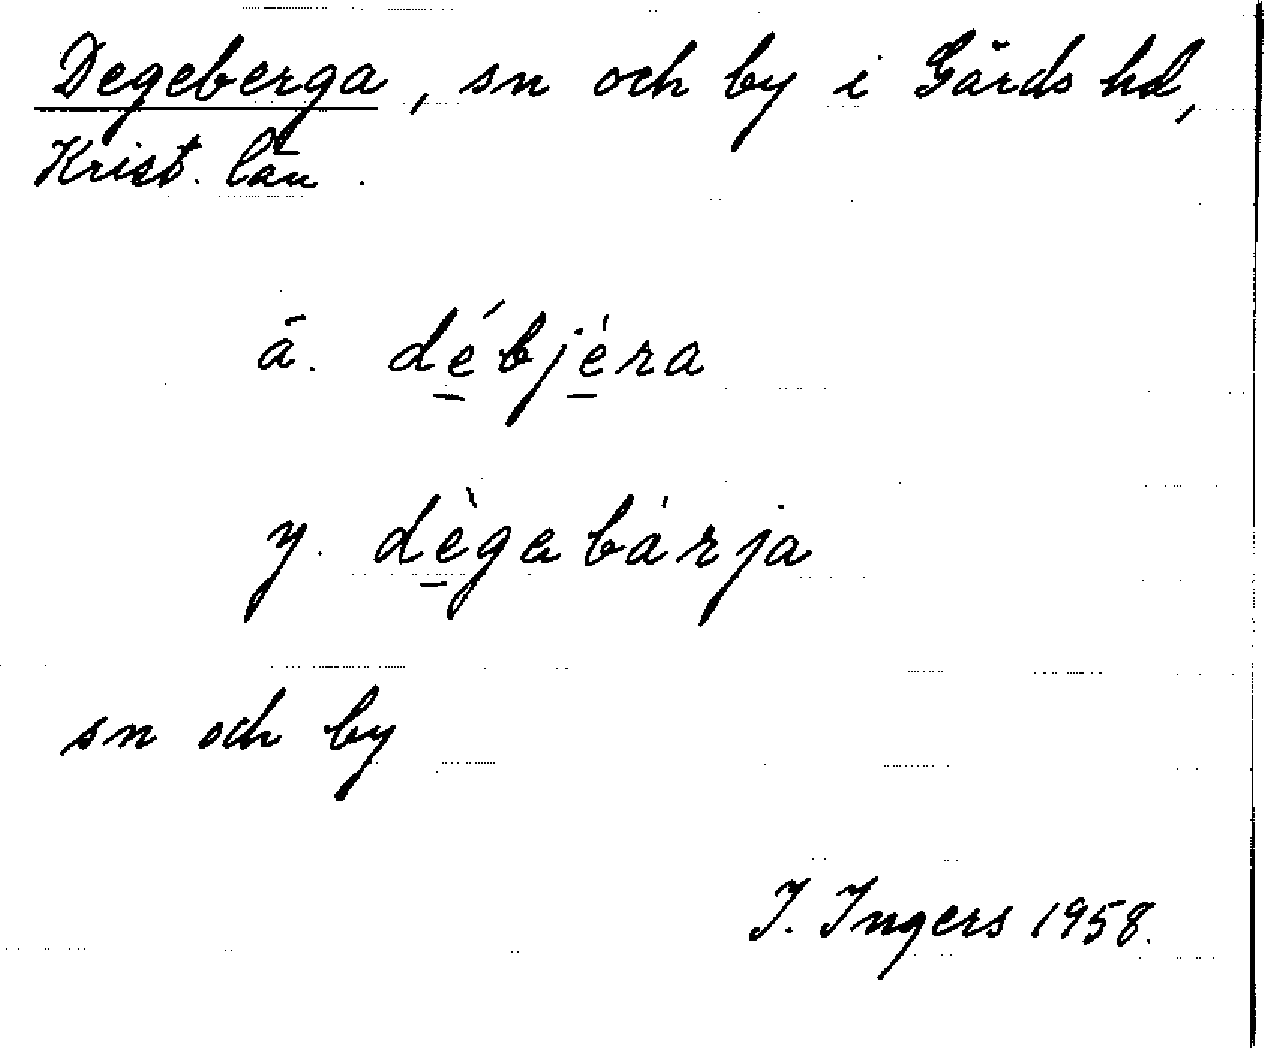 Degeberga, sn och by i Gärds hd,
Krist. län.
ä. dé̱bjè̱ra
y. dè̱gabàrja
sn och by
I. Ingers 1958.